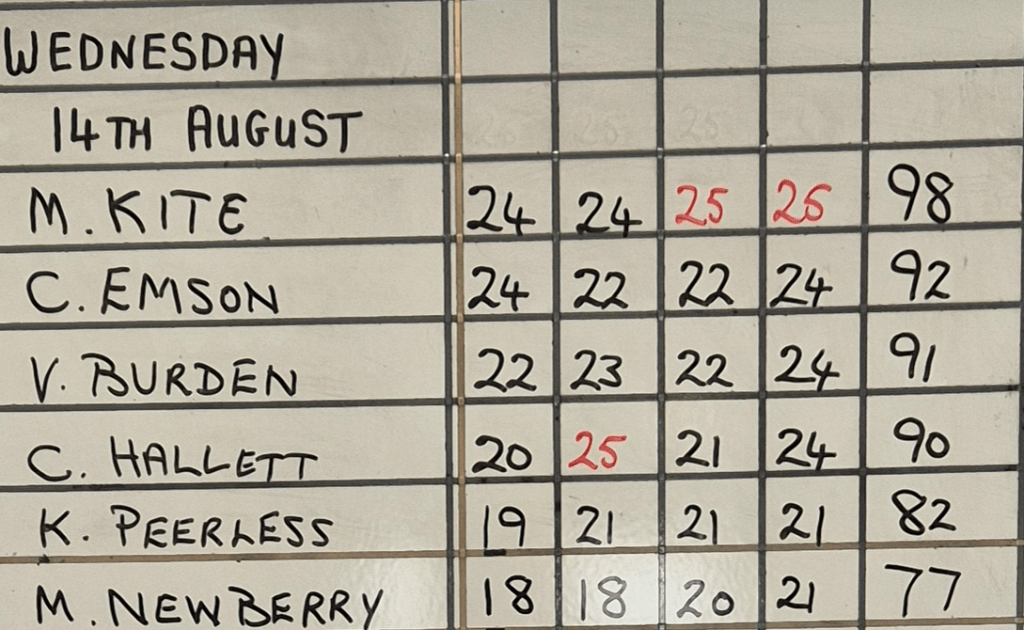 WEDNESDAY
14TH AUGUST
M. KITE 24 24 25 25 98
C. EMSON 24 22 22 24 92
V. BURDEN 22 23 22 24 91
C. HALLETT 20 25 21 24 90
K. PEERLESS 19 21 21 21 82
M. NEWBERRY 18 18 20 21 77